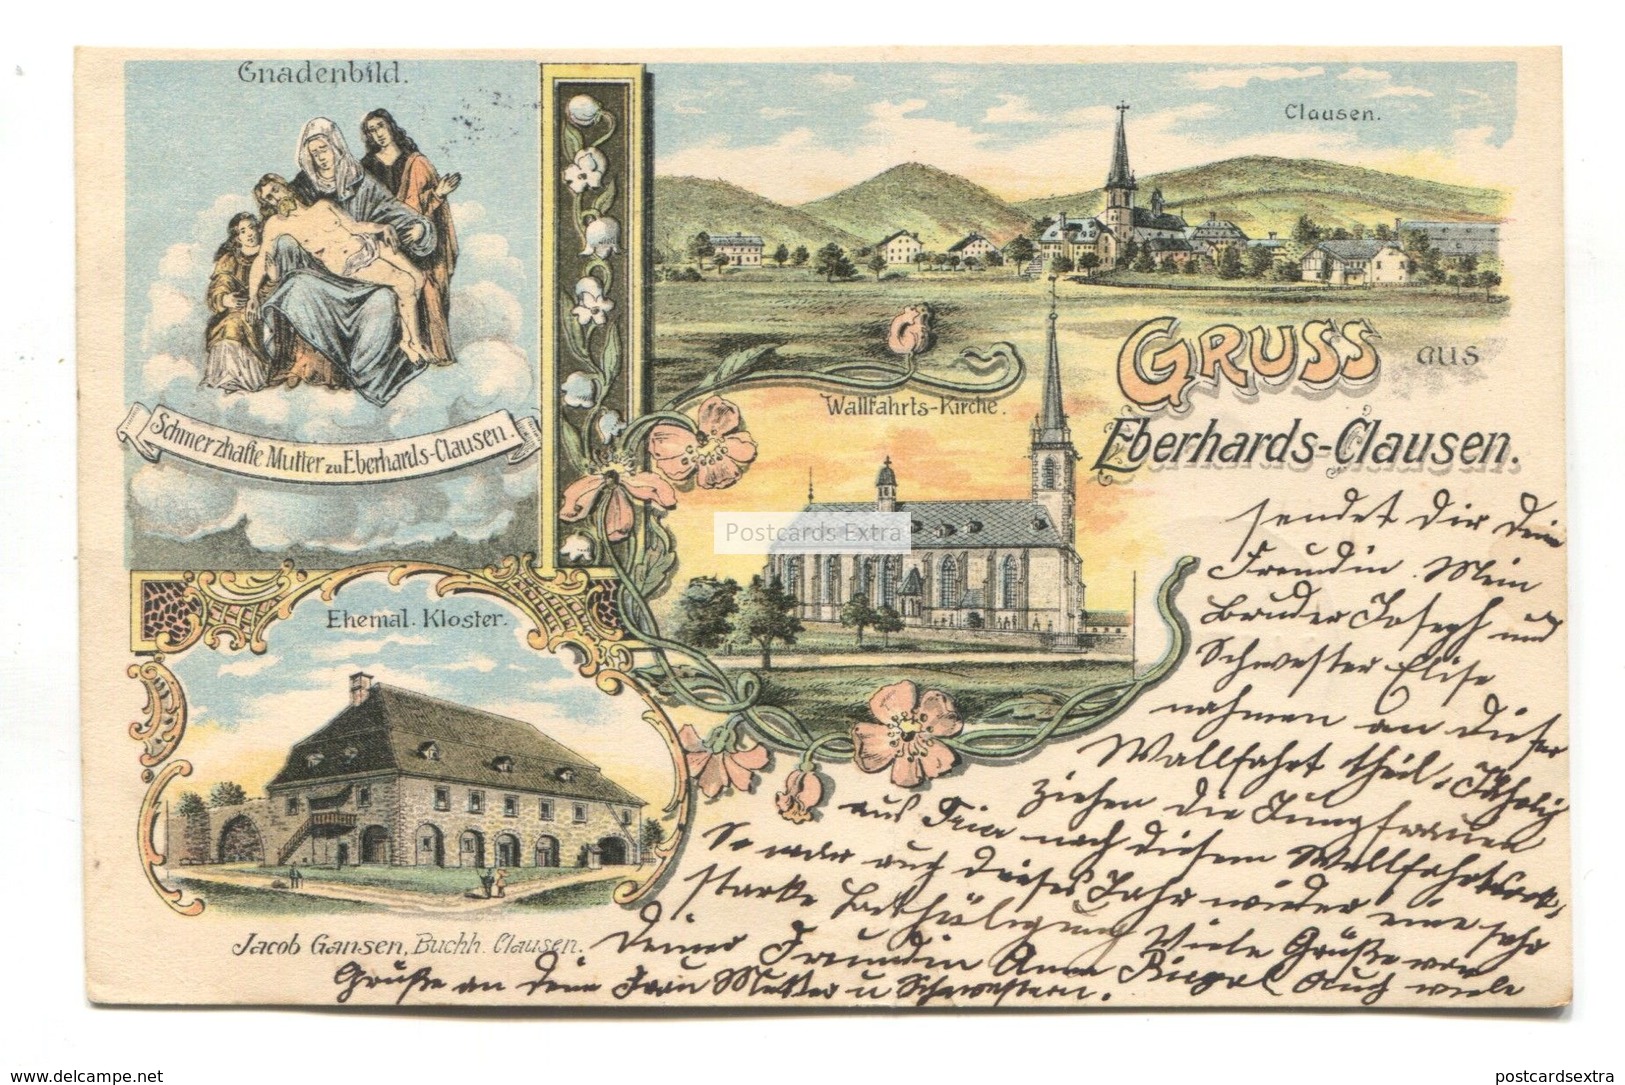 Gnadenbild.
Schmerzhafte Mutter zu Eberhards-Clausen.
Clausen.
GRUSS aus
Eberhards-Clausen.
Wallfahrts-Kirche.
Postcards Extra
Ehemal. Kloster.
Jacob Gansen, Buchh. Clausen.
sendet dir deine
Freundin. Mein
Bruder Joseph und
Schwester Elise
nahmen an dieser
Wallfahrt theil, Jährlich
ziehen die Jungfrauen
aus Trier nach diesem Wallfahrtsort,
So war auch dieses Jahr wieder eine sehr
starke Betheiligung Viele Grüße von
Deiner Freundin Anna Auch viele
Grüße an deine Frau Mutter u Schwestern.
www.delcampe.net
postcardsextra